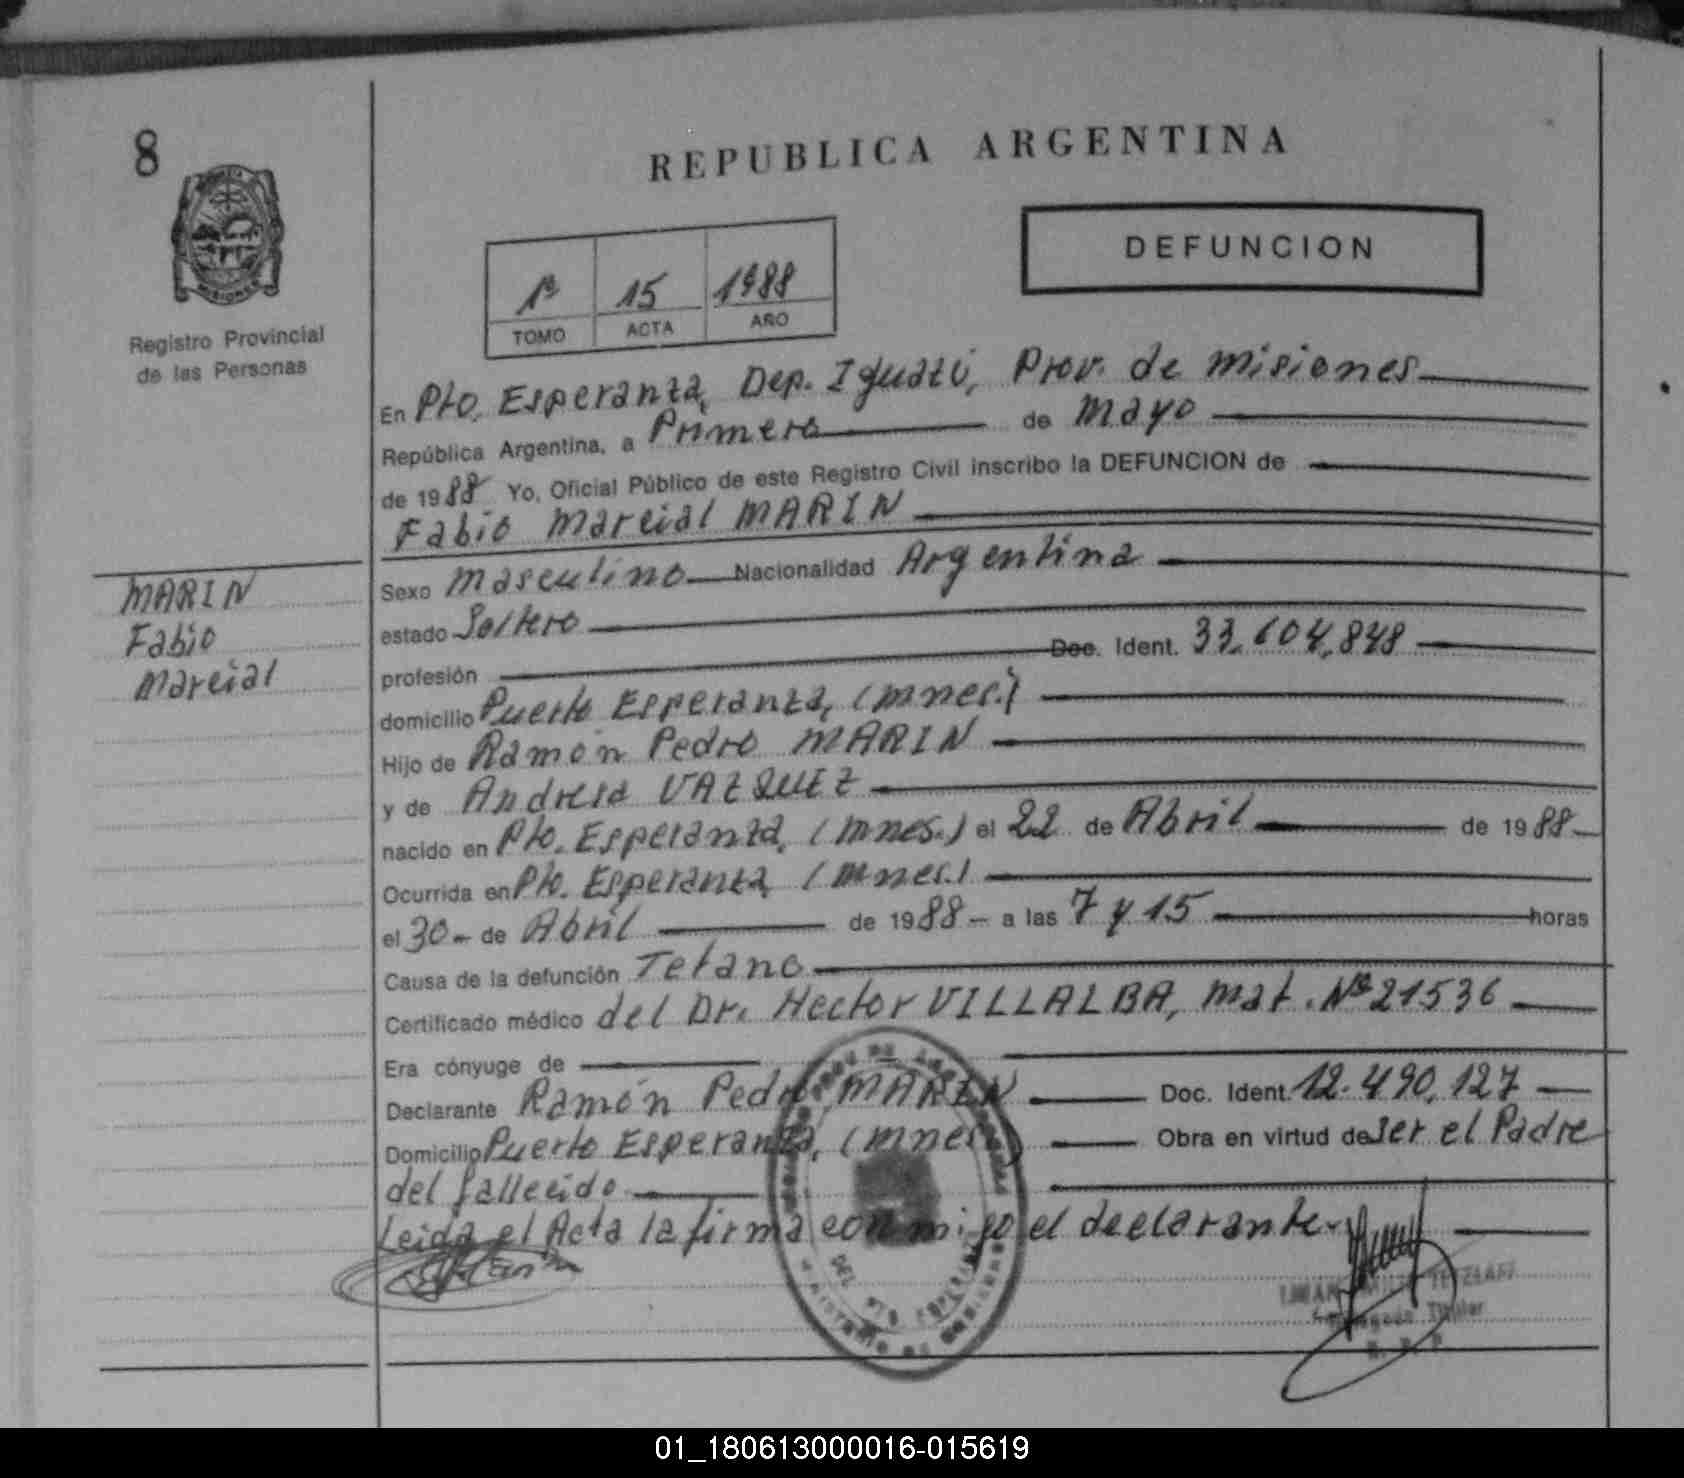 8
MISIONES
Registro Provincial
de las Personas
REPUBLICA ARGENTINA
DEFUNCION
1º 15 1988
TOMO ACTA AÑO
En Pto. Esperanza, Dep. Iguazú, Prov. de Misiones
República Argentina, a Primero de Mayo
de 1988 Yo, Oficial Público de este Registro Civil inscribo la DEFUNCION de
Fabio Marcial MARIN
MARIN
Fabio
Marcial
Sexo Masculino Nacionalidad Argentina
estado Soltero
profesión Doc. Ident. 33.604.848
domicilio Puerto Esperanza, (Mnes.)
Hijo de Ramón Pedro MARIN
y de Andresa VAZQUEZ
nacido en Pto. Esperanza, (Mnes.) el 22 de Abril de 1988
Ocurrida en Pto. Esperanza (Mnes.)
el 30 de Abril de 1988 a las 7 y 15 horas
Causa de la defunción Tetano
Certificado médico del Dr. Hector VILLALBA, Mat. Nº 21536
Era cónyuge de
Declarante Ramón Pedro MARIN Doc. Ident. 12.490.127
Domicilio Puerto Esperanza, (Mnes) Obra en virtud de Ser el Padre
del fallecido
Leida el Acta la firma conmigo el declarante
DEL PTO ESPERANZA
Titular
01_180613000016-015619